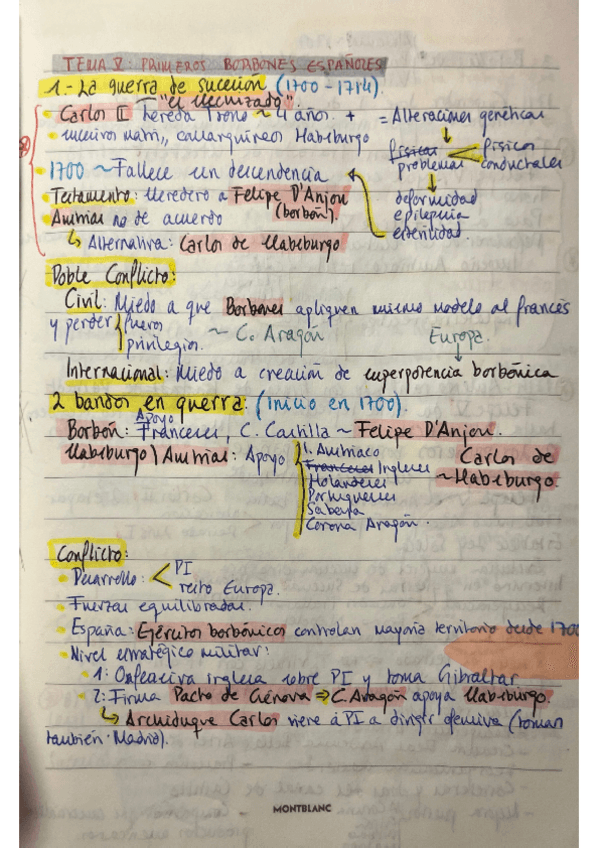 TEMA V: PRIMEROS BORBONES ESPAÑOLES
1.- La guerra de sucesión (1700 - 1714).
"el Hechizado".
• Carlos II hereda trono ~ 4 años. + = Alteraciones genéticas
• sucesivos matri., consanguíneos Habsburgo
físicas problemas < físicos conductales
• 1700 ~ Fallece sin descendencia
• Testamento: Heredero a Felipe D'Anjou (borbón).
deformidad
epilepsia
esterilidad.
• Austrias no de acuerdo
↳ Alternativa: Carlos de Habsburgo
Doble Conflicto:
Civil: Miedo a que Borbones apliquen mismo modelo al francés
y perder fueros privilegios ~ C. Aragón
Europa.
Internacional: Miedo a creación de superpotencia borbónica
2 bandos en guerra: (Inicio en 1700).
Apoyo
Borbón: Franceses, C. Castilla ~ Felipe D'Anjou.
Habsburgo \ Austrias: Apoyo
I. Austriaco
Franceses Ingleses
Holandeses
Portugueses
Saboya
Corona Aragón.
Carlos de
~ Habsburgo.
Conflicto:
• Desarrollo: < PI
resto Europa.
• Fuerzas equilibradas.
• España: Ejércitos borbónicos controlan mayoría territorio desde 1700
• Nivel estratégico militar:
• 1: Ofensiva inglesa sobre PI y toma Gibraltar
• 2: Firma Pacto de Génova ⇒ C. Aragón apoya Habsburgo.
↳ Archiduque Carlos viene a PI a dirigir ofensiva (toman
también Madrid).
MONTBLANC